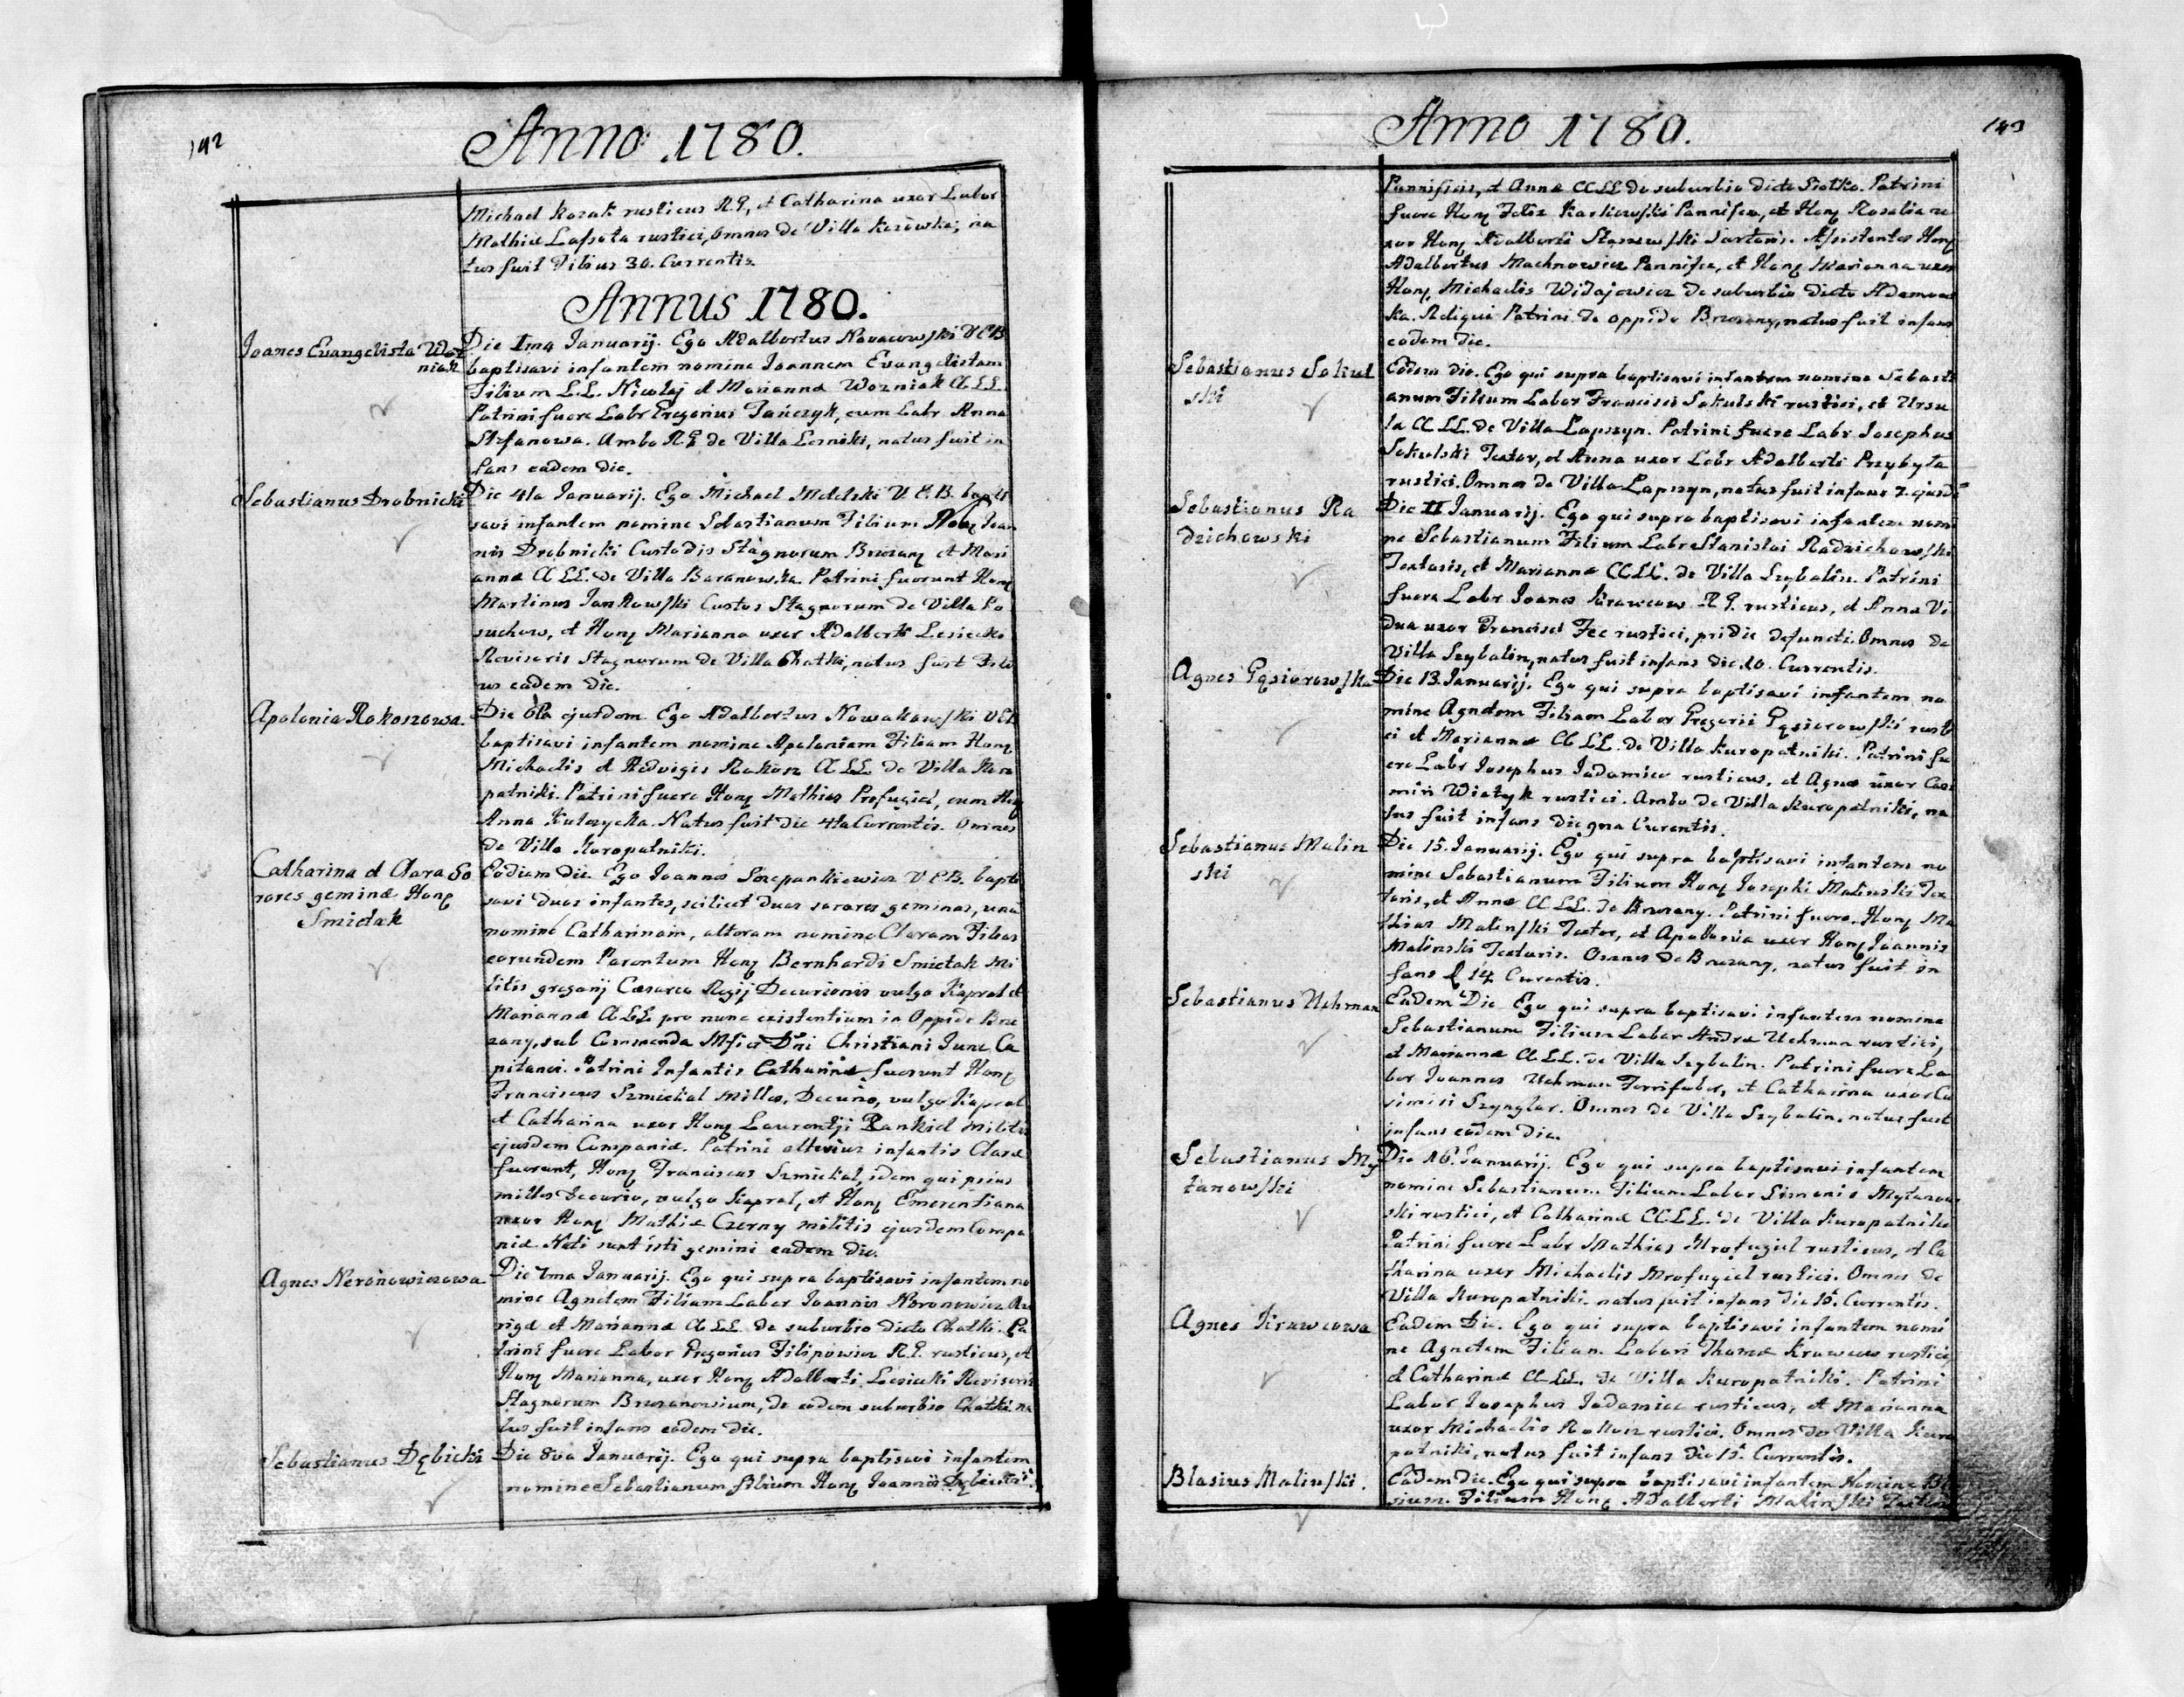 192
Anno 1780.
Michael Kozak rusticus R.G., et Catharina uxor Labor
Mathiæ Lassota rustici, Omnes de Villa Kozówka, na
tus fuit Filius 30. Currentis
Annus 1780.
Joanes Evangelista Woz
niak
Die 1ma Januarij. Ego Adalbertus Novacowski V.C.B.
baptisavi infantem nomine Joannem Evangelistam
Filium L.L. Nicolaj et Mariannæ Wozniak C.LL.
Patrini fuere Labr Gregorius Jańczyk, cum Labr Anna
Stefanowa. Ambo R.G. de Villa Lesniki, natus fuit in
fans eadem die.
Sebastianus Drobnicki
Die 4ta Januarij. Ego Michael Melelski V.C.B. bapti
savi infantem nomine Sebastianum Filium Hon Joan
nis Drobnicki Custodis Stagnorum Brzozan et Mari
annæ C.LL. de Villa Baranowka. Patrini fuerunt Hon
Martinus Jankowski Custos Stagnorum de Villa Po
suchow, et Hon Marianna uxor Adalberti Lesiecki
Revisoris Stagnorum de Villa Chatki, natus fuit Fili
us eadem die.
Apolonia Rokoszowa.
Die 6ta ejusdem Ego Adalbertus Nowakowski V.C.B.
baptisavi infantem nomine Apoloniam Filiam Hon
Michaelis et Hedvigis Rokosz C.LL. de Villa Kuro
patniki. Patrini fuere Hon Mathias Profugiel, cum Hon
Anna Kulczycka. Natus fuit die 4ta Currentis. Omnes
de Villa Kuropatniki.
Catharina et Clara So
rores geminæ Hon
Smietak
Eodium die. Ego Joannes Szczepankiewicz V.C.B. bapti
savi duos infantes, scilicet duas sorores geminas, una
nomine Catharinam, alteram nomine Claram Filias
eorundem Parentum Hon Bernhardi Smietak Mi
litis gregarij Cæsareo Regij Decurionis vulgo Kapral et
Mariannæ C.LL. pro nunc existentium in Oppido Brze
zany, sub Commenda Mfici Dni Christiani June Ca
pitanei. Patrini Infantis Catharinæ fuerunt Hon
Franciscus Szmickal Milles, Decurio, vulgo Kapral
et Catharina uxor Hon Laurentij Rankiel Militis
ejusdem Companiæ. Patrini alterius infantis Claræ
fuerunt, Hon Franciscus Szmickal, idem qui prius
milles Decurio, vulgo Kapral, et Hon Emerentiana
uxor Hon Mathiæ Czerny militis ejusdem Compa
niæ. Nati sunt isti gemini eadem die.
Agnes Neronowiczowa
Die 7ma Januarij. Ego qui supra baptisavi infantem no
mine Agnetem Filiam Labor Joannis Neronowicz Au
rigæ et Mariannæ C.LL. de suburbio dicto Chatki. Pa
trini fuere Labor Gregorius Filipowicz R.G. rusticus, et
Hon Marianna, uxor Hon Adalberti Lesiecki Revisoris
Stagnorum Brzezanensium, de eodem suburbio Chatki na
tus fuit infans eadem die.
Sebastianus Dębicki
Die 8va Januarij. Ego qui supra baptisavi infantem
nomine Sebastianum filium Hon Joannis Dębicki
Anno 1780.
193
Pannificis, et Annæ C.LL. de suburbio dicto Siotko. Patrini
fuere Hon Felix Karkowski Pannifex, et Hon Rosalia u
xor Hon Adalberti Staszewski Sartoris. Assistentes Hon
Adalbertus Machnowicz Pannifex, et Hon Marianna uxor
Hon Michaelis Widajewicz de suburbio dicto Adamow
ka. Reliqui Patrini de oppido Brzezany, natus fuit infans
eodem die.
Sebastianus Sokul
ski
Eodem die. Ego qui supra baptisavi infantem nomine Sebasti
anum Filium Labor Francisci Sokulski rustici, et Ursu
la C.LL. de Villa Lapszyn. Patrini fuere Labr Josephus
Sokulski Textor, et Anna uxor Labr Adalberti Przybyła
rustici. Omnes de Villa Lapszyn, natus fuit infans 7. ejusde
Sebastianus Ra
dzichowski
Die 11 Januarij. Ego qui supra baptisavi infantem nomi
ne Sebastianum Filium Labr Stanislai Radzichowski
Textoris, et Mariannæ C.LL. de Villa Szybalin. Patrini
fuere Labr Joanes Krawcow R.G. rusticus, et Anna Vi
dua uxor Francisci Fec rustici, pridie defuncti. Omnes de
Villa Szybalin, natus fuit infans die 10. Currentis.
Agnes Gąsiorowska
Die 13. Januarij. Ego qui supra baptisavi infantem no
mine Agnetem Filiam Labor Gregorii Gąsiorowski rusti
ci et Mariannæ C.LL. de Villa Kuropatniki. Patrini fu
ere Labr Josephus Jadamiec rusticus, et Agnes uxor Casi
miri Wiatyk rustici. Ambo de Villa Kuropatniki, na
tus fuit infans die 9na Curentis.
Sebastianus Malin
ski
Die 15. Januarij. Ego qui supra baptisavi infantem no
mine Sebastianum Filium Hon Josephi Malinski Tex
toris, et Annæ C.LL. de Brzezany. Patrini fuere Hon Ma
thias Malinski Textor, et Apollonia uxor Hon Joannis
Malinski Textoris. Omnes de Brzezany, natus fuit in
fans 14. Curentis.
Sebastianus Uchman
Eadem Die Ego qui supra baptisavi infantem nomine
Sebastianum Filium Labor Andreæ Uchman rustici,
et Mariannæ C.LL. de Villa Szybalin. Patrini fuere La
bor Joannes Uchman Ferrifaber, et Catharina uxor Ca
simiri Szynglar. Omnes de Villa Szybalin. natus fuit
infans eodem die.
Sebastianus My
tanowski
Die 16. Januarij. Ego qui supra baptisavi infantem
nomine Sebastianum Filium Labor Simonis Mytanow
ski rustici, et Catharinæ C.LL. de Villa Kuropatniki
Patrini fuere Labr Mathias Mrofugiel rusticus, et Ca
tharina uxor Michaelis Mrofugiel rustici. Omnes de
Villa Kuropatniki. natus fuit infans die 15. Currentis.
Agnes Krawcowa
Eadem Die. Ego qui supra baptisavi infantem nomi
ne Agnetem Filiam Labori Thomæ Krawcow rustici
et Catharinæ C.LL. de Villa Kuropatniki. Patrini
Labor Josephus Jadamiec rusticus, et Marianna
uxor Michaelis Rokosz rustici. Omnes de Villa Kuro
patniki, natus fuit infans die 15. Currentis.
Blasius Malinski.
Eadem die. Ego qui supra baptisavi infantem Nomine Bla
sium. Filium Hon Adalberti Malinski Textoris